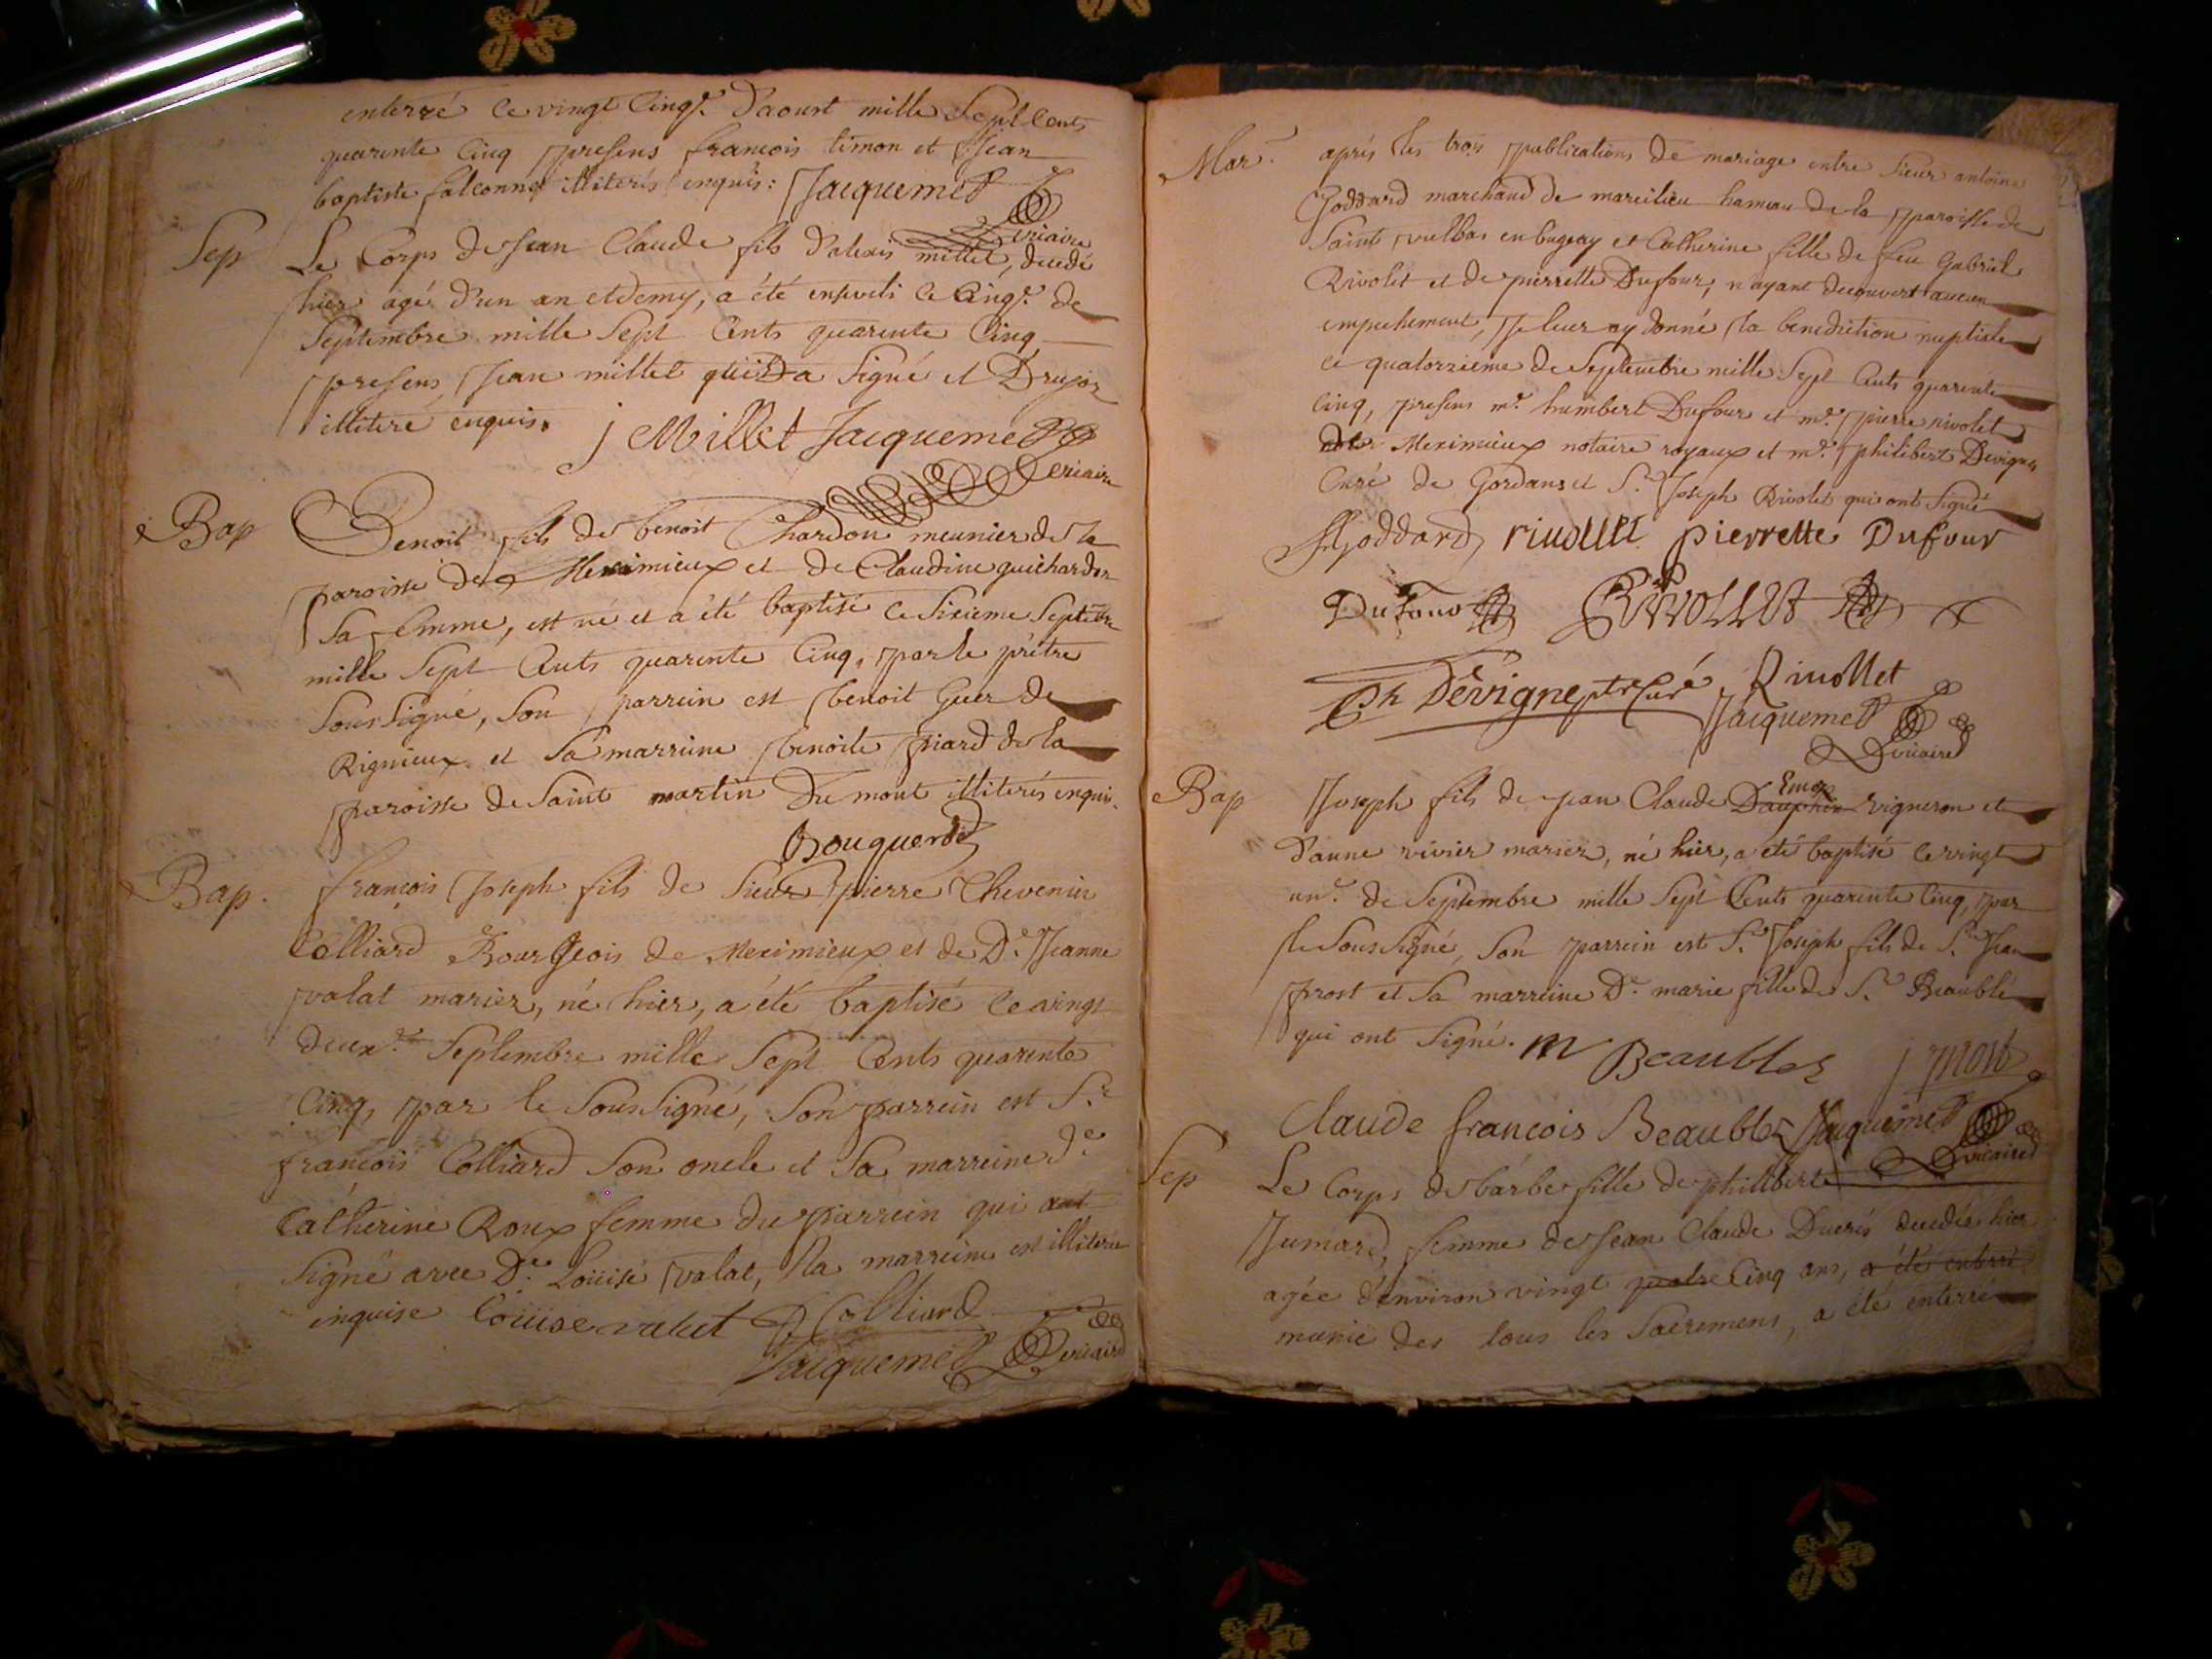 enterré ce vingt cinq.e d'aoust mille sept cents
quarente cinq presens francois timon et Jean
baptiste falconnet illiterés enquis: Jacquemet
vicaire
Sep Le Corps de Jean Claude fils d'alexis millet, decedé
hier agé d'un an et demy, a été enseveli ce cinq.e de
Septembre mille Sept Cents quarente Cinq
presens Jean millet qui a Signé et Drujon
illiteré enquis. j Millet Jacquemet
vicaire
Bap Benoit fils de benoit Chardon meunier de la
paroisse de Meximieux et de Claudine guichardon
Sa femme, est né et a été baptisé ce Sixieme Septbre
mille Sept Cents quarente Cinq, par le prêtre
Sous Signé, Son parrein est benoit Guer de
Rignieux et Sa marreine benoite piard de la
paroisse de Saint martin Du mont illiterés enquis.
Bouquerod
Bap. françois Joseph fils de Sieur pierre Chevenin
Colliard Bourgeois de Meximieux et de D.e Jeanne
valat mariez, né hier, a été baptisé ce vingt
deux.e Septembre mille Sept Cents quarente
Cinq, par le Sous Signé, Son parrein est S.r
françois Colliard Son oncle et Sa marreine d.e
Catherine Roux femme du parrein qui ont
Signé avec D.e Loüise valat, la marreine est illiterée
enquise Loüise valat Colliard
Jacquemet vicaire
Mar. aprés les trois publications de mariage entre Sieur antoine
Goddard marchand de marcilieu hameau de la paroisse de
Saint vulbas en bugeay et Catherine fille de feu Gabriel
Rivolet et de pierrette Dufour, n'ayant decouvert aucun
empechement, Je leur ay donné la benediction nuptiale
ce quatorzieme de Septembre mille Sept Cents quarente
Cinq, presens m.e humbert Dufour et m.e pierre rivolet
de Meximieux notaire royaux et m.e philibert Devigne
Curé de Gordans et S.r Joseph Rivolet qui ont Signé
Goddard rivollet pierrette Dufour
Dufour RIVOLLET
Ph Devigne ptre Curé Rivollet
Jacquemet
vicaire
Bap Joseph fils de Jean Claude Dauphin Emoz vigneron et
d'anne vivier mariez, né hier, a été baptisé ce vingt
un.e de Septembre mille Sept Cents quarente Cinq, par
le Sous Signé, Son parrein est S.r Joseph fils de S.r Jean
prost et Sa marreine D.e marie fille de S.r Beaublé
qui ont Signé. m Beaublez j prost
Claude françois Beaublez Jacquemet
vicaire
Sep Le Corps de barbe fille de philibert
Jumard, femme de Jean Claude Ducrés decedée hier
agée d'environ vingt quatre Cinq ans, a été enterré
munie des tous les Sacremens, a été enterrée